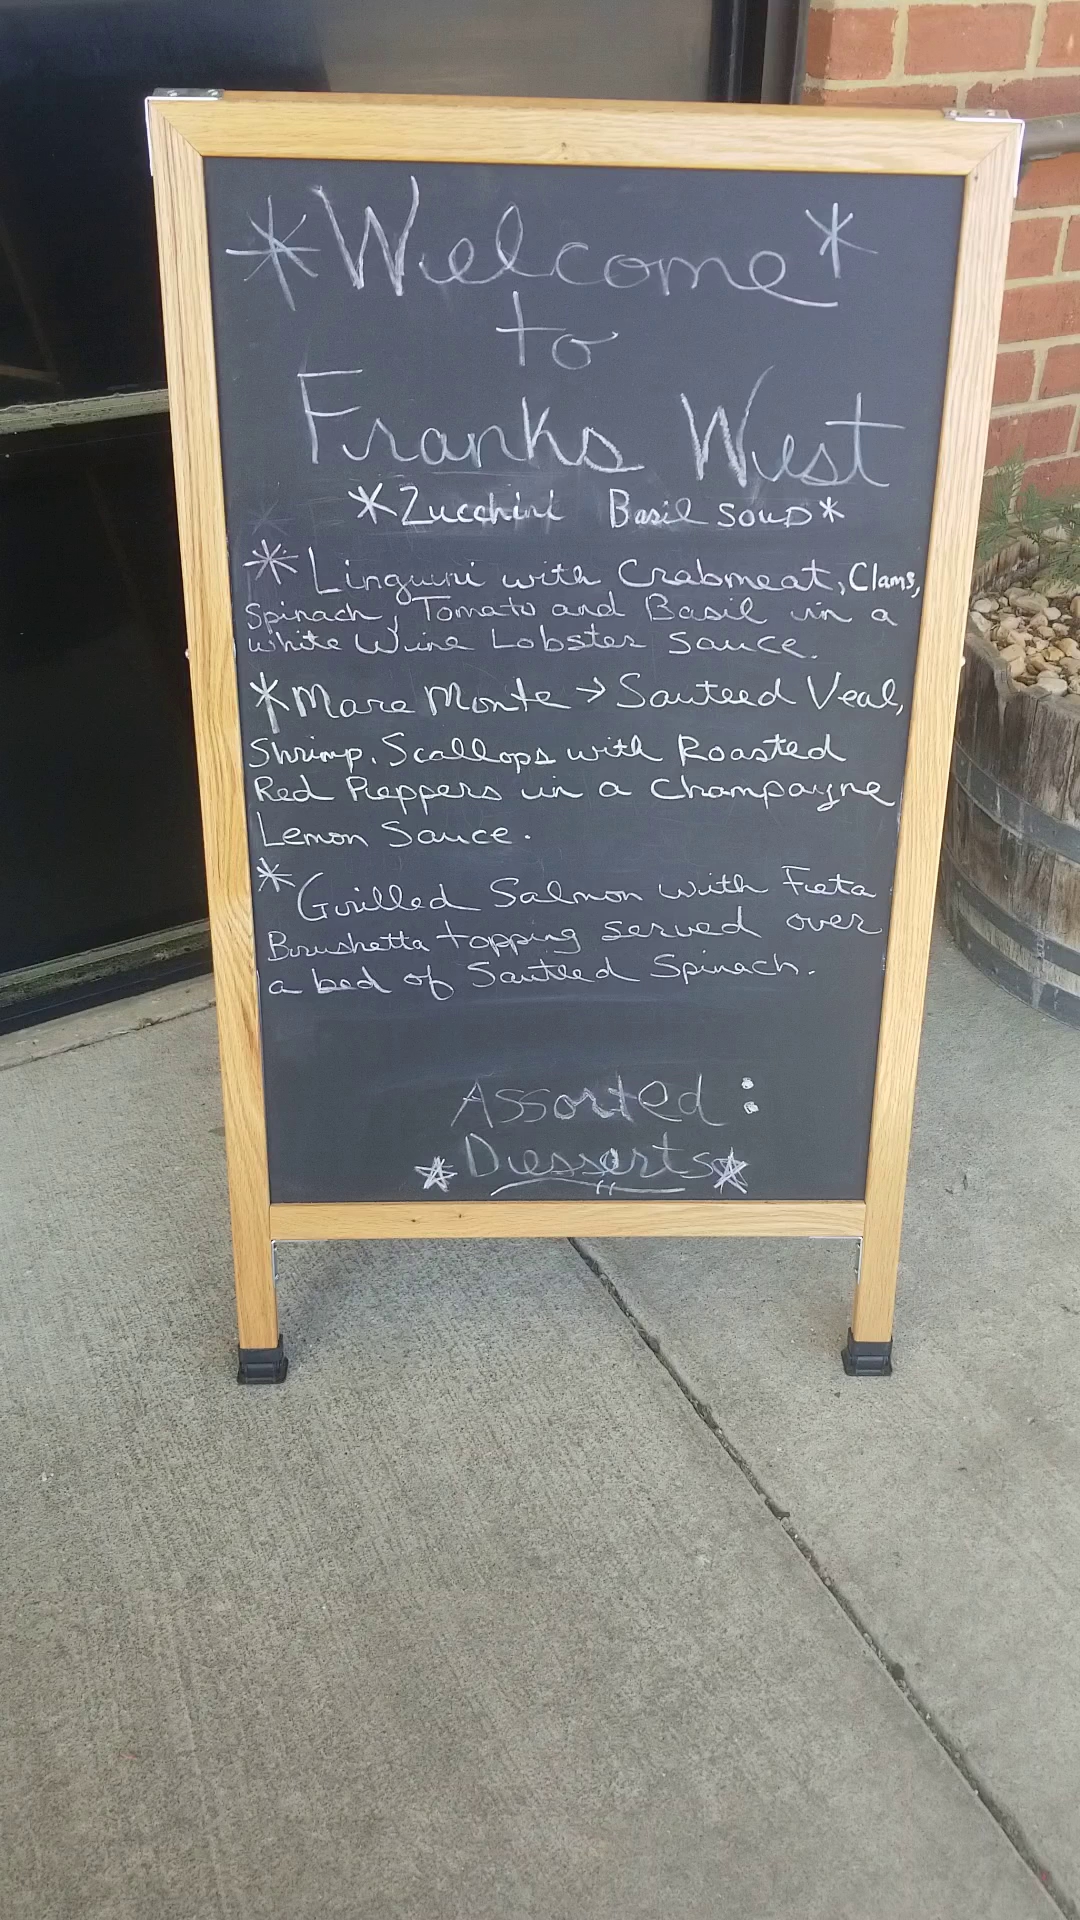 *Welcome*
to
Franks West
*Zucchini Basil Soup*
*Linguini with Crabmeat, Clams,
Spinach, Tomato and Basil in a
white Wine Lobster Sauce.
*Mare Monte → Sauteed Veal,
Shrimp, Scallops with Roasted
Red Peppers in a Champagne
Lemon Sauce.
*Grilled Salmon with Feta
Brushetta topping served over
a bed of Sauteed Spinach.
Assorted:
*Desserts*